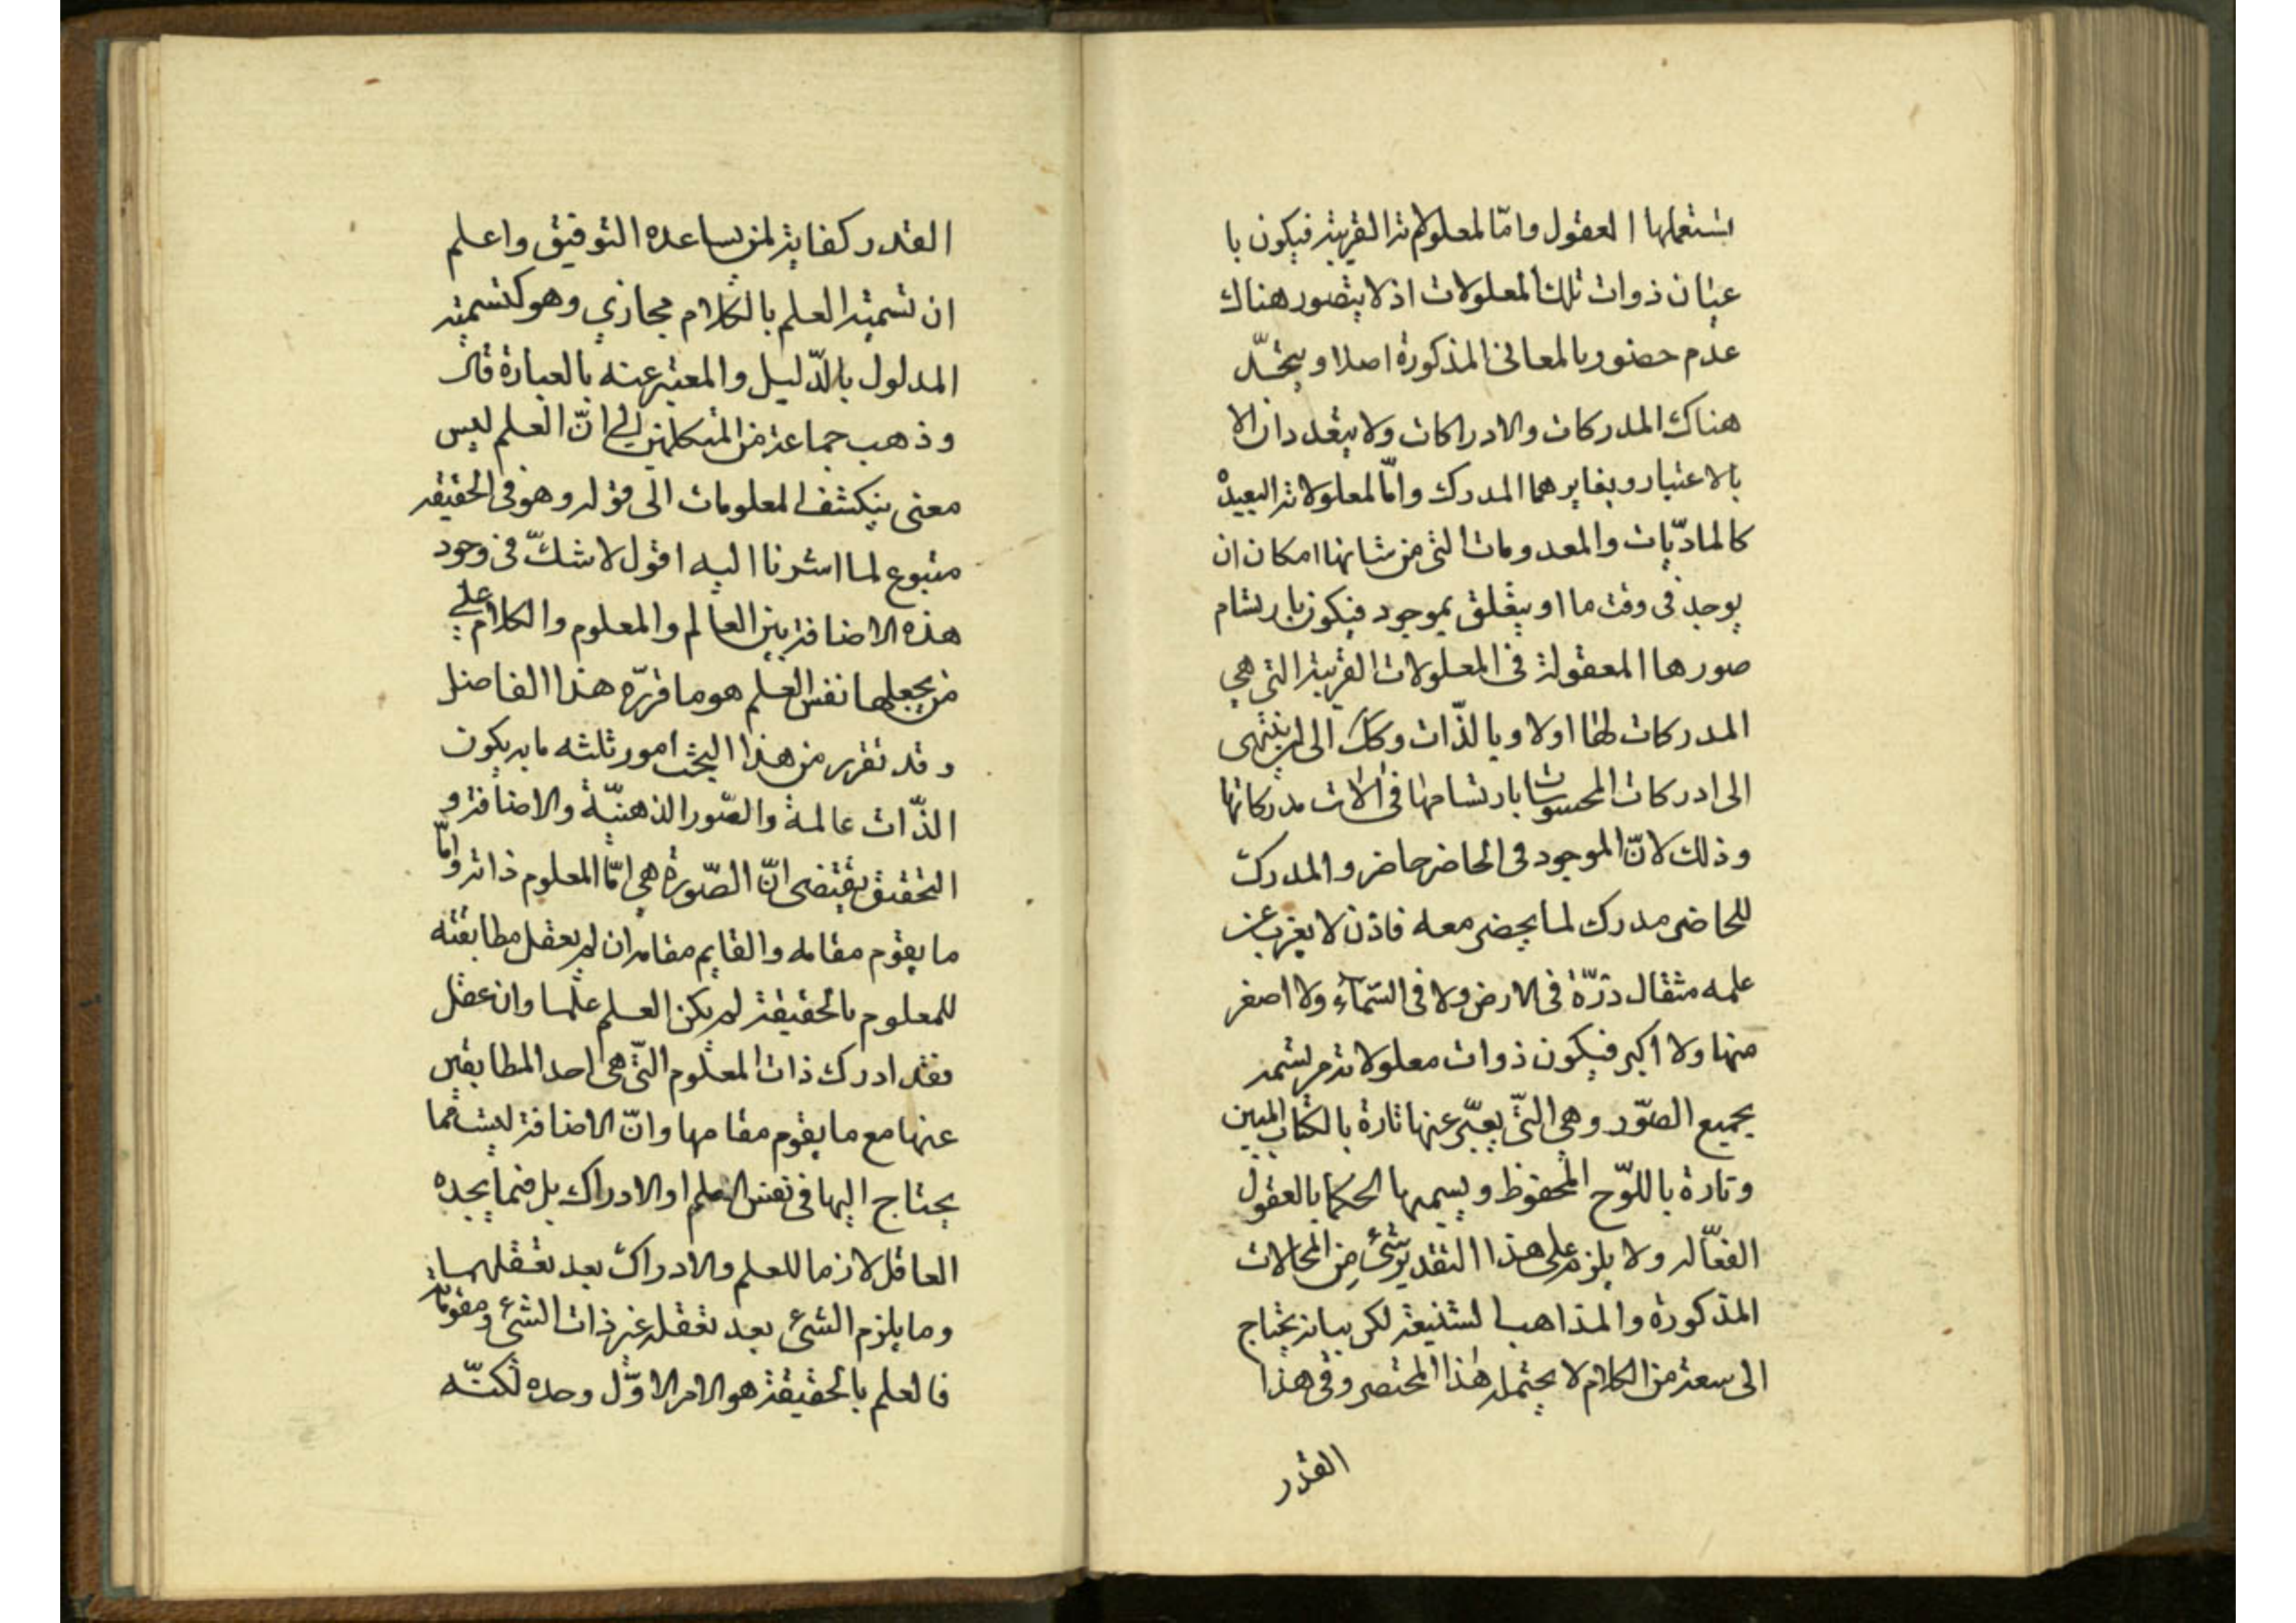 يستعملها العقول وامّا لمعلولاته القريبة فيكون با
عيان ذوات تلك المعلولات اذ لا يتصور هناك
عدم حضور بالمعانى المذكورة اصلا ويتحدّ
هناك المدركات والادراكات ولا يتعددان الا
بالاعتبار ويغايرهما المدرك وامّا لمعلولاته البعيدة
كالماديّات والمعدومات التى من شانها امكان ان
يوجد فى وقت ما او يتعلق بموجود فيكون بارتسام
صورها المعقولة فى المعلولات القريبة التى هي
المدركات لها اولا وبالذّات وكك الى ان ينتهى
الى ادركات المحسوسات بارتسامها فى الات مدركاتها
وذلك لانّ الموجود فى الحاضر حاضر والمدرك
للحاضر مدرك لما يحضر معه فاذن لا يعزب عن
علمه مثقال ذرّة فى الارض ولا فى السّمآء ولا اصغر
منها ولا اكبر فيكون ذوات معلولاته مرتسمة
بجميع الصّور وهي التّى يعبّر عنها تارة بالكتاب المبين
وتارة باللوّح المحفوظ ويسميها الحكما بالعقول
الفعّالة ولا يلزم على هذا التقدير شئ من المحالات
المذكورة والمذاهب الشنيعة لكن بيانه يحتاج
الى سعة من الكلام لا يحتمله هذا المختصر وفى هذا
القدر
القدر كفاية لمن يساعده التوفيق واعلم
ان تسمية العلم بالكلام مجازي وهو كتسمية
المدلول بالدّليل والمعبر عنه بالعبارة قال
وذهب جماعة من المتكلمين الي انّ العلم ليس
معنى ينكشف المعلومات الى قوله وهو فى الحقيقه
متبوع لما اشرنا اليه اقول لا شكّ فى وجود
هذه الاضافة بين العالم والمعلوم والكلام علي
من يجعلها نفس العلم هو ما قررّه هذا الفاضل
وقد تقرر من هذا البحث امور ثلثه ما به يكون
الذّات عالمة والصّور الذهنيّة والاضافة و
التحقيق يقتضى انّ الصّورة هي امّا المعلوم ذاته وامّا
ما يقوم مقامه والقايم مقامه ان لم يعقل مطابقته
للمعلوم بالحقيقة لم يكن العلم علما وان عقل
فقد ادرك ذات المعلوم التّى هى احد المطابقين
عنها مع ما يقوم مقامها وانّ الاضافة ليست مما
يحتاج اليها فى نفس العلم او الادراك بل فيما يجده
العاقل لازما للعلم والادراك بعد تعقلهما
وما يلزم الشئ بعد تعقله غير ذات الشئ ومقوماته
فالعلم بالحقيقة هو الامر الاوّل وحده لكنّه